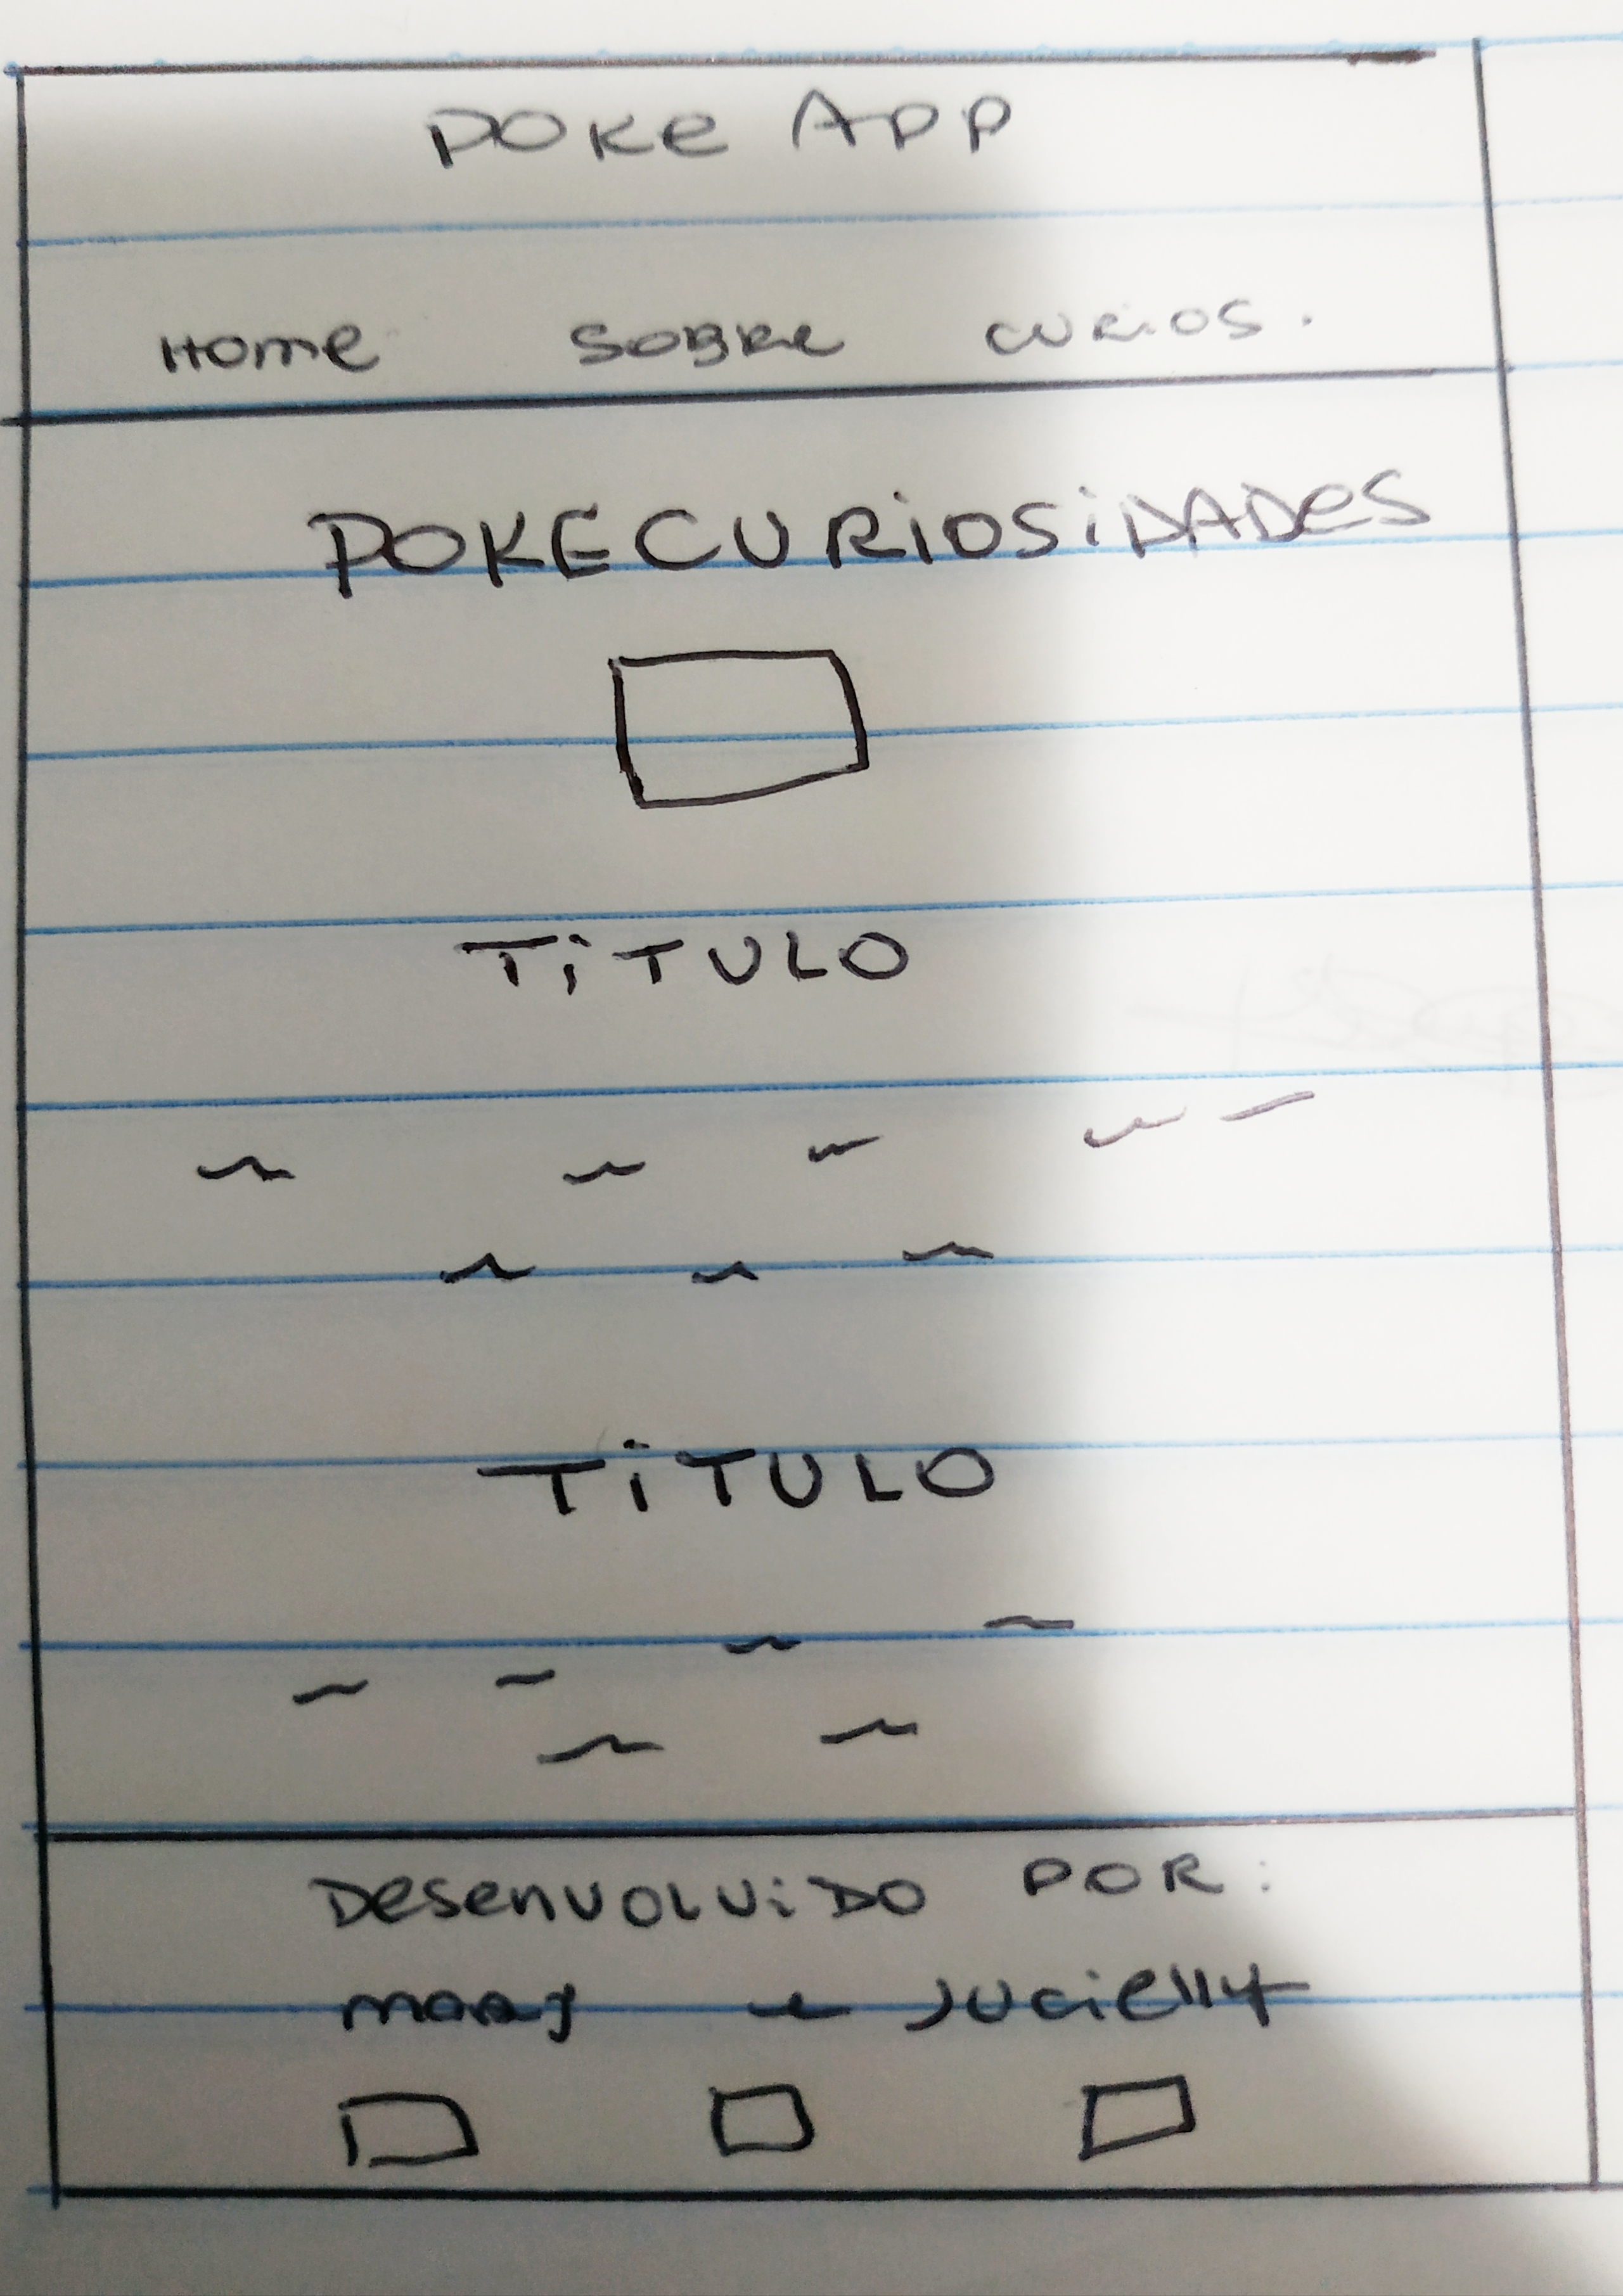 POKE APP
Home SOBRE CURIOS.
POKECURIOSIDADES
TiTULO
TiTULO
Desenvolvido POR:
e Jucielly